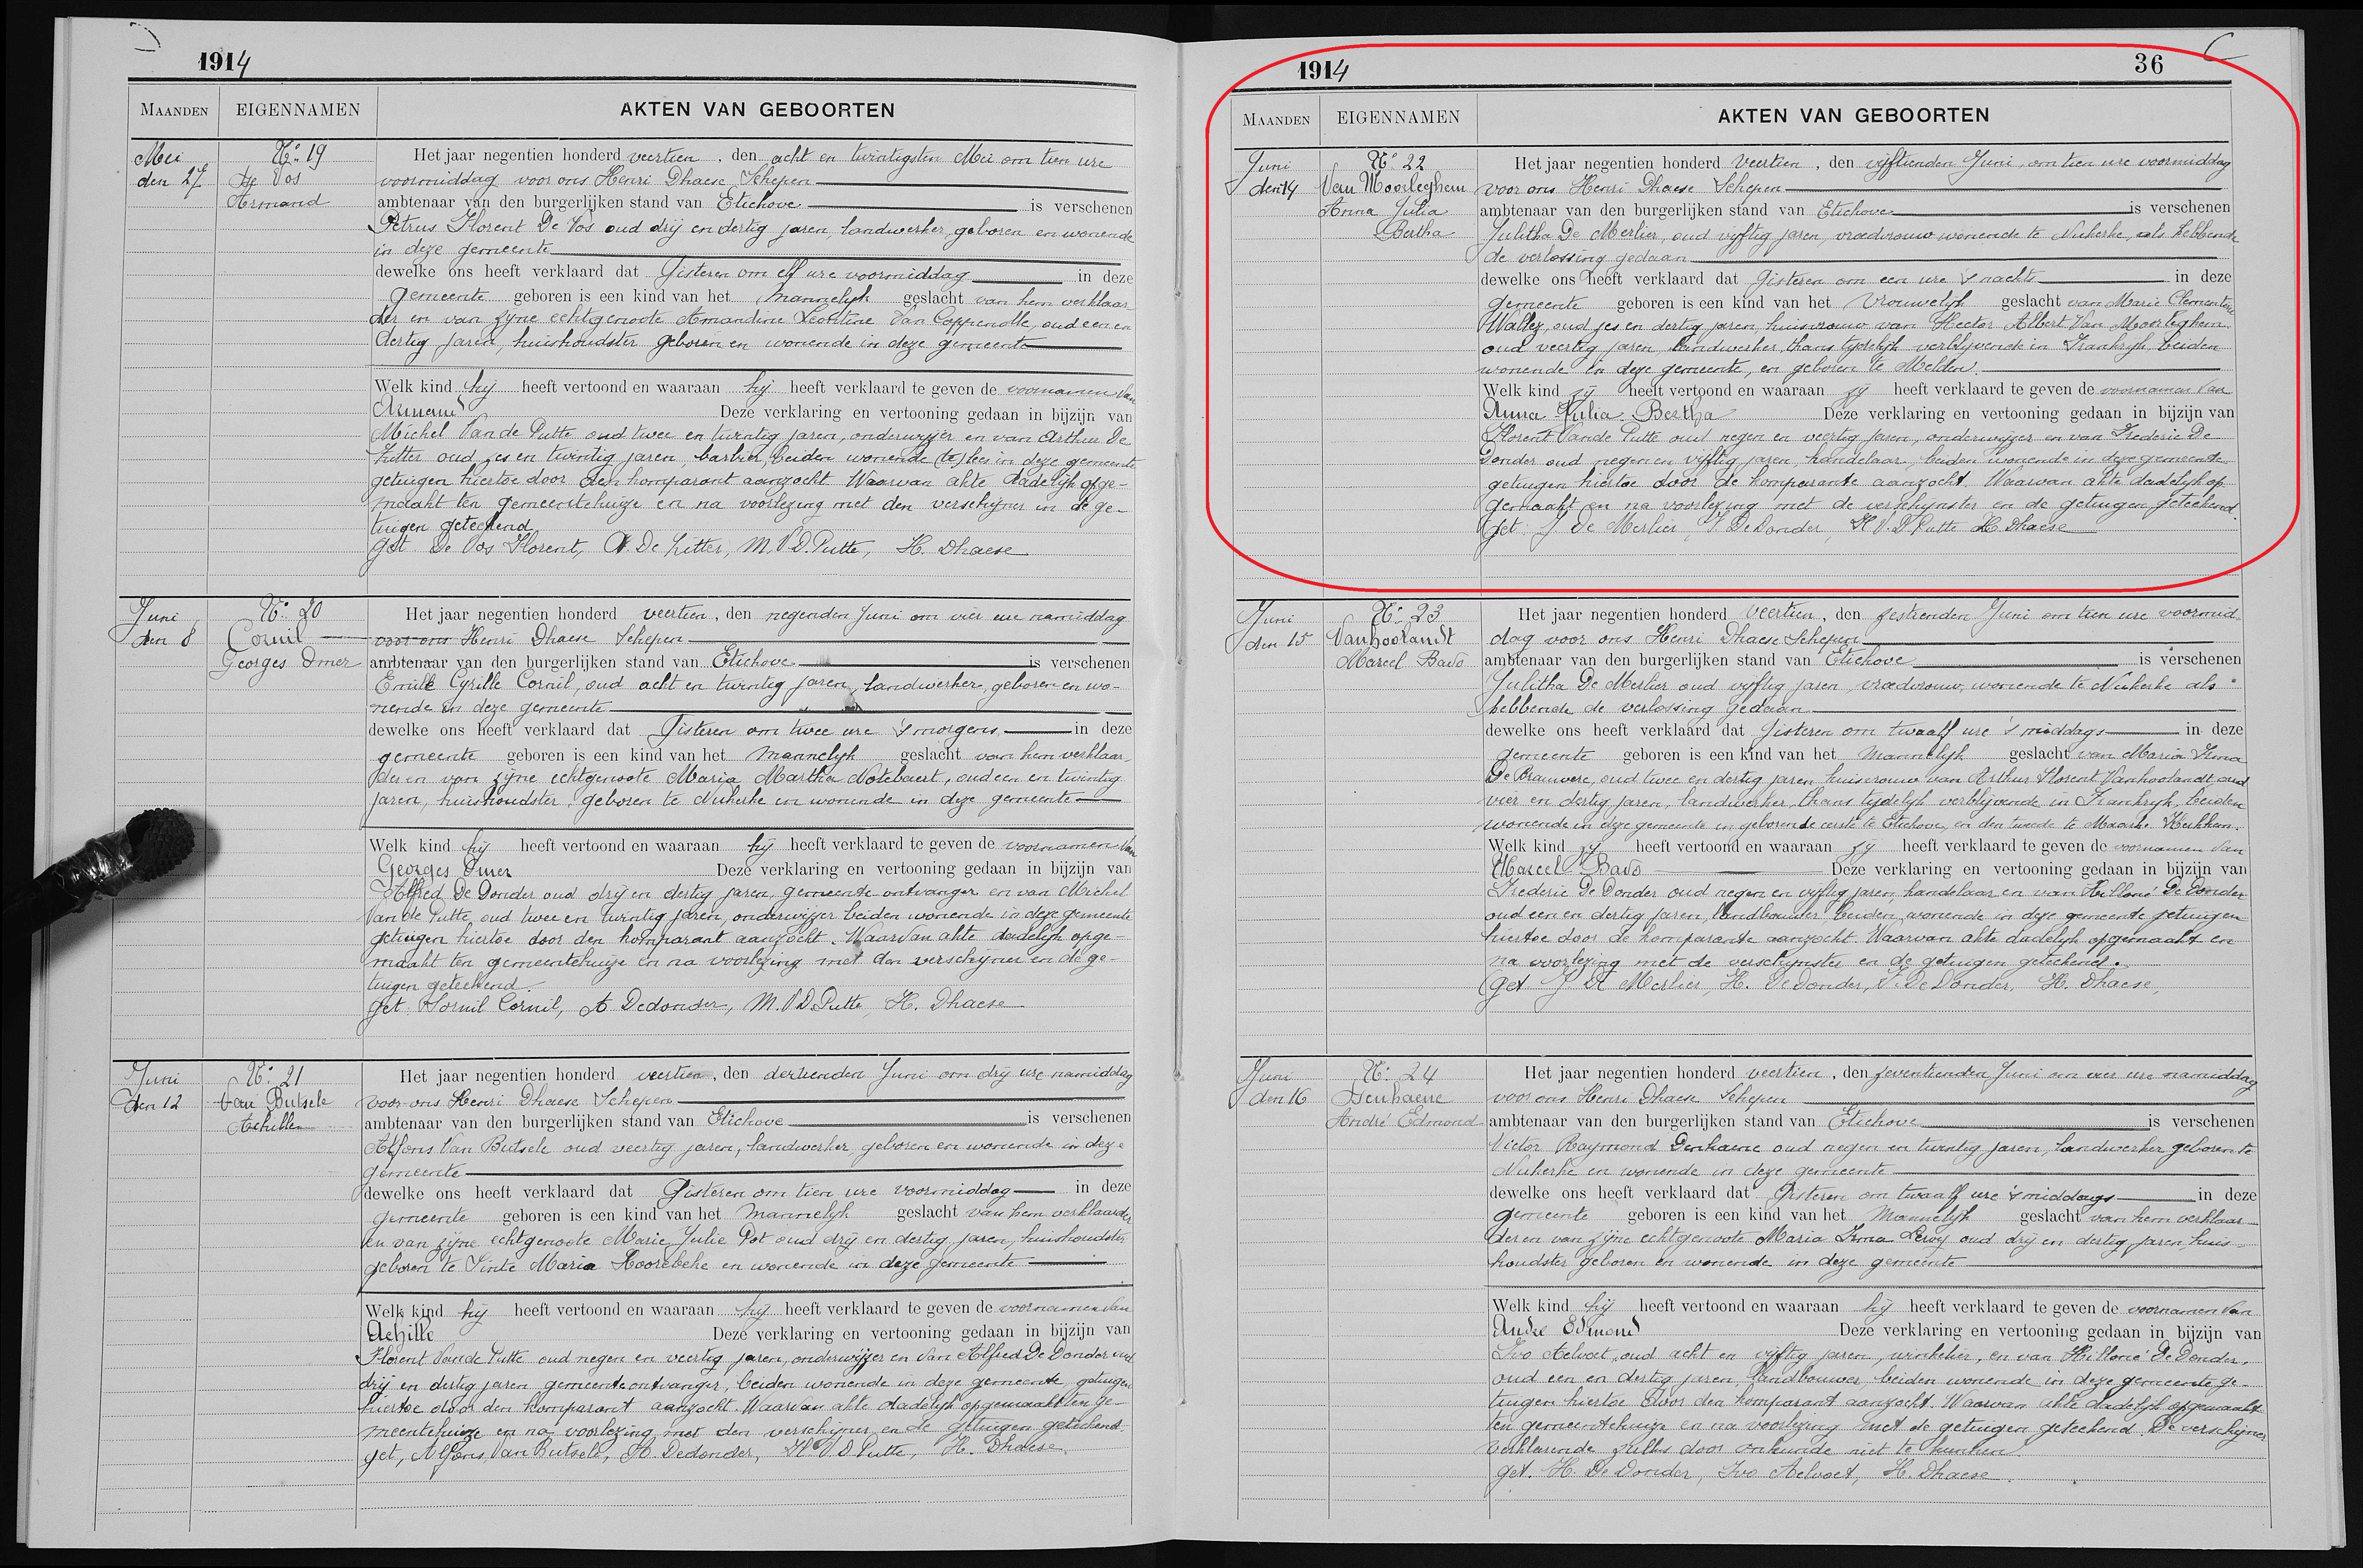 1914
MAANDEN EIGENNAMEN AKTEN VAN GEBOORTEN
Mei den 27
N° 19
De Vos
Armand
Het jaar negentien honderd veertien, den acht en twintigsten Mei om tien ure
voormiddag voor ons Henri Dhaese Schepen
ambtenaar van den burgerlijken stand van Etichove is verschenen
Petrus Florent De Vos oud drij en dertig jaren, landwerker, geboren en wonende
in deze gemeente
dewelke ons heeft verklaard dat Gisteren om elf ure voormiddag in deze
gemeente geboren is een kind van het mannelijk geslacht van hem verklaar
der en van zijne echtgenoote Amandine Leontine Van Coppenolle, oud een en
dertig jaren, huishoudster geboren en wonende in deze gemeente
Welk kind hij heeft vertoond en waaraan hij heeft verklaard te geven de voornamen van
Armand Deze verklaring en vertooning gedaan in bijzijn van
Michel Van de Putte oud twee en twintig jaren, onderwijzer en van Arthur De
Zutter oud zes en twintig jaren, barbier, beiden wonende (te) les in deze gemeente
getuigen hiertoe door den komparant aanzocht. Waarvan akte dadelijk opge-
maakt ten gemeentehuize en na voorlezing met den verschijner en de ge-
tuigen geteekend
get. De Vos Florent, A. De Zutter, M. V.D. Putte, H. Dhaese
Juni den 8
N° 20
Cornil
Georges Omer
Het jaar negentien honderd veertien, den negenden Juni om vier ure namiddag
voor ons Henri Dhaese Schepen
ambtenaar van den burgerlijken stand van Etichove is verschenen
Emille Cyrille Cornil, oud acht en twintig jaren, landwerker, geboren en wo-
nende in deze gemeente
dewelke ons heeft verklaard dat Gisteren om twee ure 's morgens in deze
gemeente geboren is een kind van het mannelijk geslacht van hem verklaar-
der en van zijne echtgenoote Maria Martha Notebaert, oud een en twintig
jaren, huishoudster, geboren te Nukerke en wonende in deze gemeente
Welk kind hij heeft vertoond en waaraan hij heeft verklaard te geven de voornamen van
Georges Omer Deze verklaring en vertooning gedaan in bijzijn van
Alfred De Donder oud drij en dertig jaren, gemeente ontvanger en van Michel
Van de Putte, oud twee en twintig jaren, onderwijzer beiden wonende in deze gemeente
getuigen hiertoe door den komparant aanzocht. Waarvan akte dadelijk opge-
maakt ten gemeentehuize en na voorlezing met den verschijner en de ge-
tuigen geteekend.
get. Cornil, A Dedonder, M. V.D. Putte, H. Dhaese
Juni den 12
N° 21
Van Butsele
Achille
Het jaar negentien honderd veertien, den dertienden Juni om drij ure namiddag
voor ons Henri Dhaese Schepen
ambtenaar van den burgerlijken stand van Etichove is verschenen
Alfons Van Butsele oud veertig jaren, landwerker, geboren en wonende in deze
gemeente
dewelke ons heeft verklaard dat Gisteren om tien ure voormiddag in deze
gemeente geboren is een kind van het mannelijk geslacht van hem verklaarder
en van zijne echtgenoote Marie Julie Pot oud drij en dertig jaren, huishoudster
geboren te Sinte Maria Hoorebeke en wonende in deze gemeente
Welk kind hij heeft vertoond en waaraan hij heeft verklaard te geven de voornamen van
Achille Deze verklaring en vertooning gedaan in bijzijn van
Florent Van de Putte oud negen en veertig jaren, onderwijzer en van Alfred De Donder oud
drij en dertig jaren gemeente ontvanger, beiden wonende in deze gemeente, getuigen
hiertoe door den komparant aanzocht. Waarvan akte dadelijk opgemaakt ten ge-
meentehuize en na voorlezing met den verschijner en de getuigen geteekend.
get, Alfons Van Butsele, A. Dedonder, V D Putte, H. Dhaese
1914 36
MAANDEN EIGENNAMEN AKTEN VAN GEBOORTEN
Juni den 14
N° 22
Van Moorleghem
Anna Julia
Bertha
Het jaar negentien honderd veertien, den vijftienden Juni, om tien ure voormiddag
voor ons Henri Dhaese Schepen
ambtenaar van den burgerlijken stand van Etichove is verschenen
Julitha De Merlier, oud vijftig jaren, vroedvrouw wonende te Nukerke, als hebbende
de verlossing gedaan
dewelke ons heeft verklaard dat Gisteren om een ure 's nachts in deze
gemeente geboren is een kind van het vrouwelijk geslacht van Marie Clementine
Wallez, oud zes en dertig jaren, huisvrouw van Hector Albert Van Moorleghem
oud veertig jaren, landwerker, thans tijdelijk verblijvende in Frankrijk, beiden
wonende in deze gemeente, en geboren te Melden.
Welk kind zij heeft vertoond en waaraan zij heeft verklaard te geven de voornamen van
Anna Julia Bertha Deze verklaring en vertooning gedaan in bijzijn van
Florent Van de Putte oud negen en veertig jaren, onderwijzer en van Frederic De
Donder oud negen en vijftig jaren, handelaar, beiden wonende in deze gemeente
getuigen hiertoe door de komparante aanzocht. Waarvan akte dadelijk op
gemaakt en na voorlezing met de verschijnster en de getuigen geteekend.
get. J. De Merlier, F. De Donder, V. D. Putte H. Dhaese
Juni den 15
N° 23
Vanhoolandt
Marcel Bavo
Het jaar negentien honderd veertien, den zestienden Juni om tien ure voormid-
dag voor ons Henri Dhaese Schepen
ambtenaar van den burgerlijken stand van Etichove is verschenen
Julitha De Merlier oud vijftig jaren, vroedvrouw, wonende te Nukerke als
hebbende de verlossing gedaan
dewelke ons heeft verklaard dat Gisteren om twaalf ure 's middags in deze
gemeente geboren is een kind van het mannelijk geslacht van Maria Irma
De Brauwere, oud twee en dertig jaren, huisvrouw van Arthur Florent Vanhoolandt, oud
vier en dertig jaren, landwerker, thans tijdelijk verblijvende in Frankrijk, beiden
wonende in deze gemeente en geboren de eerste te Etichove, en den tweede te Maarke Kerkhem.
Welk kind zij heeft vertoond en waaraan zij heeft verklaard te geven de voornamen van
Marcel Bavo Deze verklaring en vertooning gedaan in bijzijn van
Frederic De Donder oud negen en vijftig jaren, handelaar en van De Donder
oud een en dertig jaren, landbouwer, beiden wonende in deze gemeente getuigen
hiertoe door de komparante aanzocht. Waarvan akte dadelijk opgemaakt en
na voorlezing met de verschijnster en de getuigen geteekend.
get. J. De Merlier, H. De Donder, F. De Donder, H. Dhaese,
Juni den 16
N° 24
Denhaene
André Edmond
Het jaar negentien honderd veertien, den zeventienden Juni om vier ure namiddag
voor ons Henri Dhaese Schepen
ambtenaar van den burgerlijken stand van Etichove is verschenen
Victor Raymond Denhaene oud negen en twintig jaren, landwerker geboren te
Nukerke en wonende in deze gemeente
dewelke ons heeft verklaard dat Gisteren om twaalf ure 's middags in deze
gemeente geboren is een kind van het mannelijk geslacht van hem verklaar-
der en van zijne echtgenoote Maria Irma Leroy oud drij en dertig jaren, huis-
houdster geboren en wonende in deze gemeente
Welk kind hij heeft vertoond en waaraan hij heeft verklaard te geven de voornamen van
André Edmond Deze verklaring en vertooning gedaan in bijzijn van
Ivo Aelvoet, oud acht en vijftig jaren, winkelier, en van De Donder,
oud een en dertig jaren, landbouwer, beiden wonende in deze gemeente, ge-
tuigen hiertoe door den komparant aanzocht. Waarvan akte dadelijk opgemaakt
ten gemeentehuize en na voorlezing met de getuigen geteekend. De verschijner
verklarende zulks door onkunde niet te kunnen.
get. H. De Donder, Ivo Aelvoet, H. Dhaese.